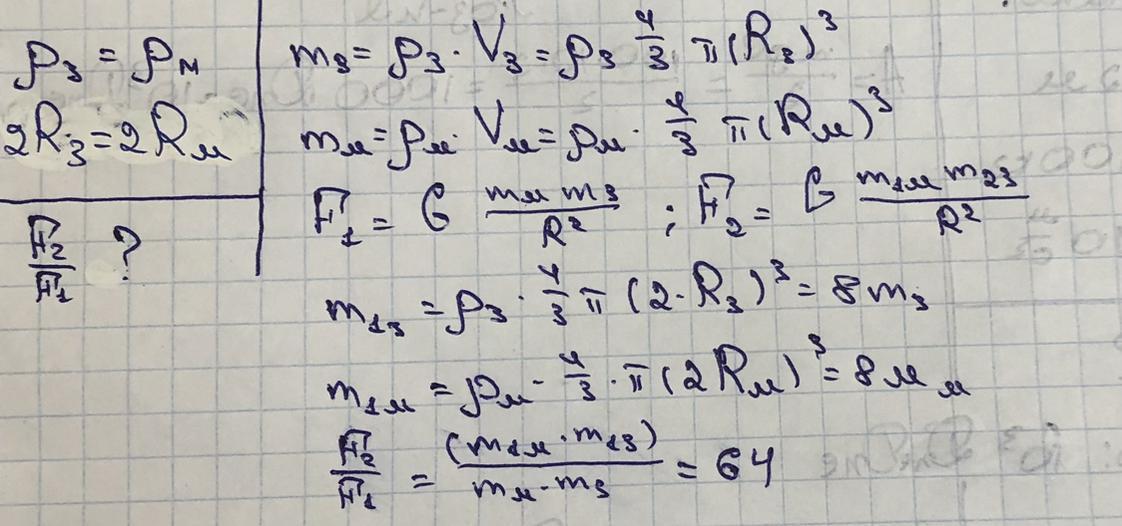 ρз = ρм
2Rз = 2Rм
F₂/F₁ ?
mз = ρз · Vз = ρз 4/3 π(Rз)³
mм = ρм · Vм = ρм · 4/3 π(Rм)³
F₁ = G mм mз / R² ; F₂ = G m₁м m₂з / R²
m₁з = ρз · 4/3 π (2·Rз)³ = 8mз
m₁м = ρм · 4/3 · π(2Rм)³ = 8мм
F₂/F₁ = (m₁м · m₁з) / mм · mз = 64